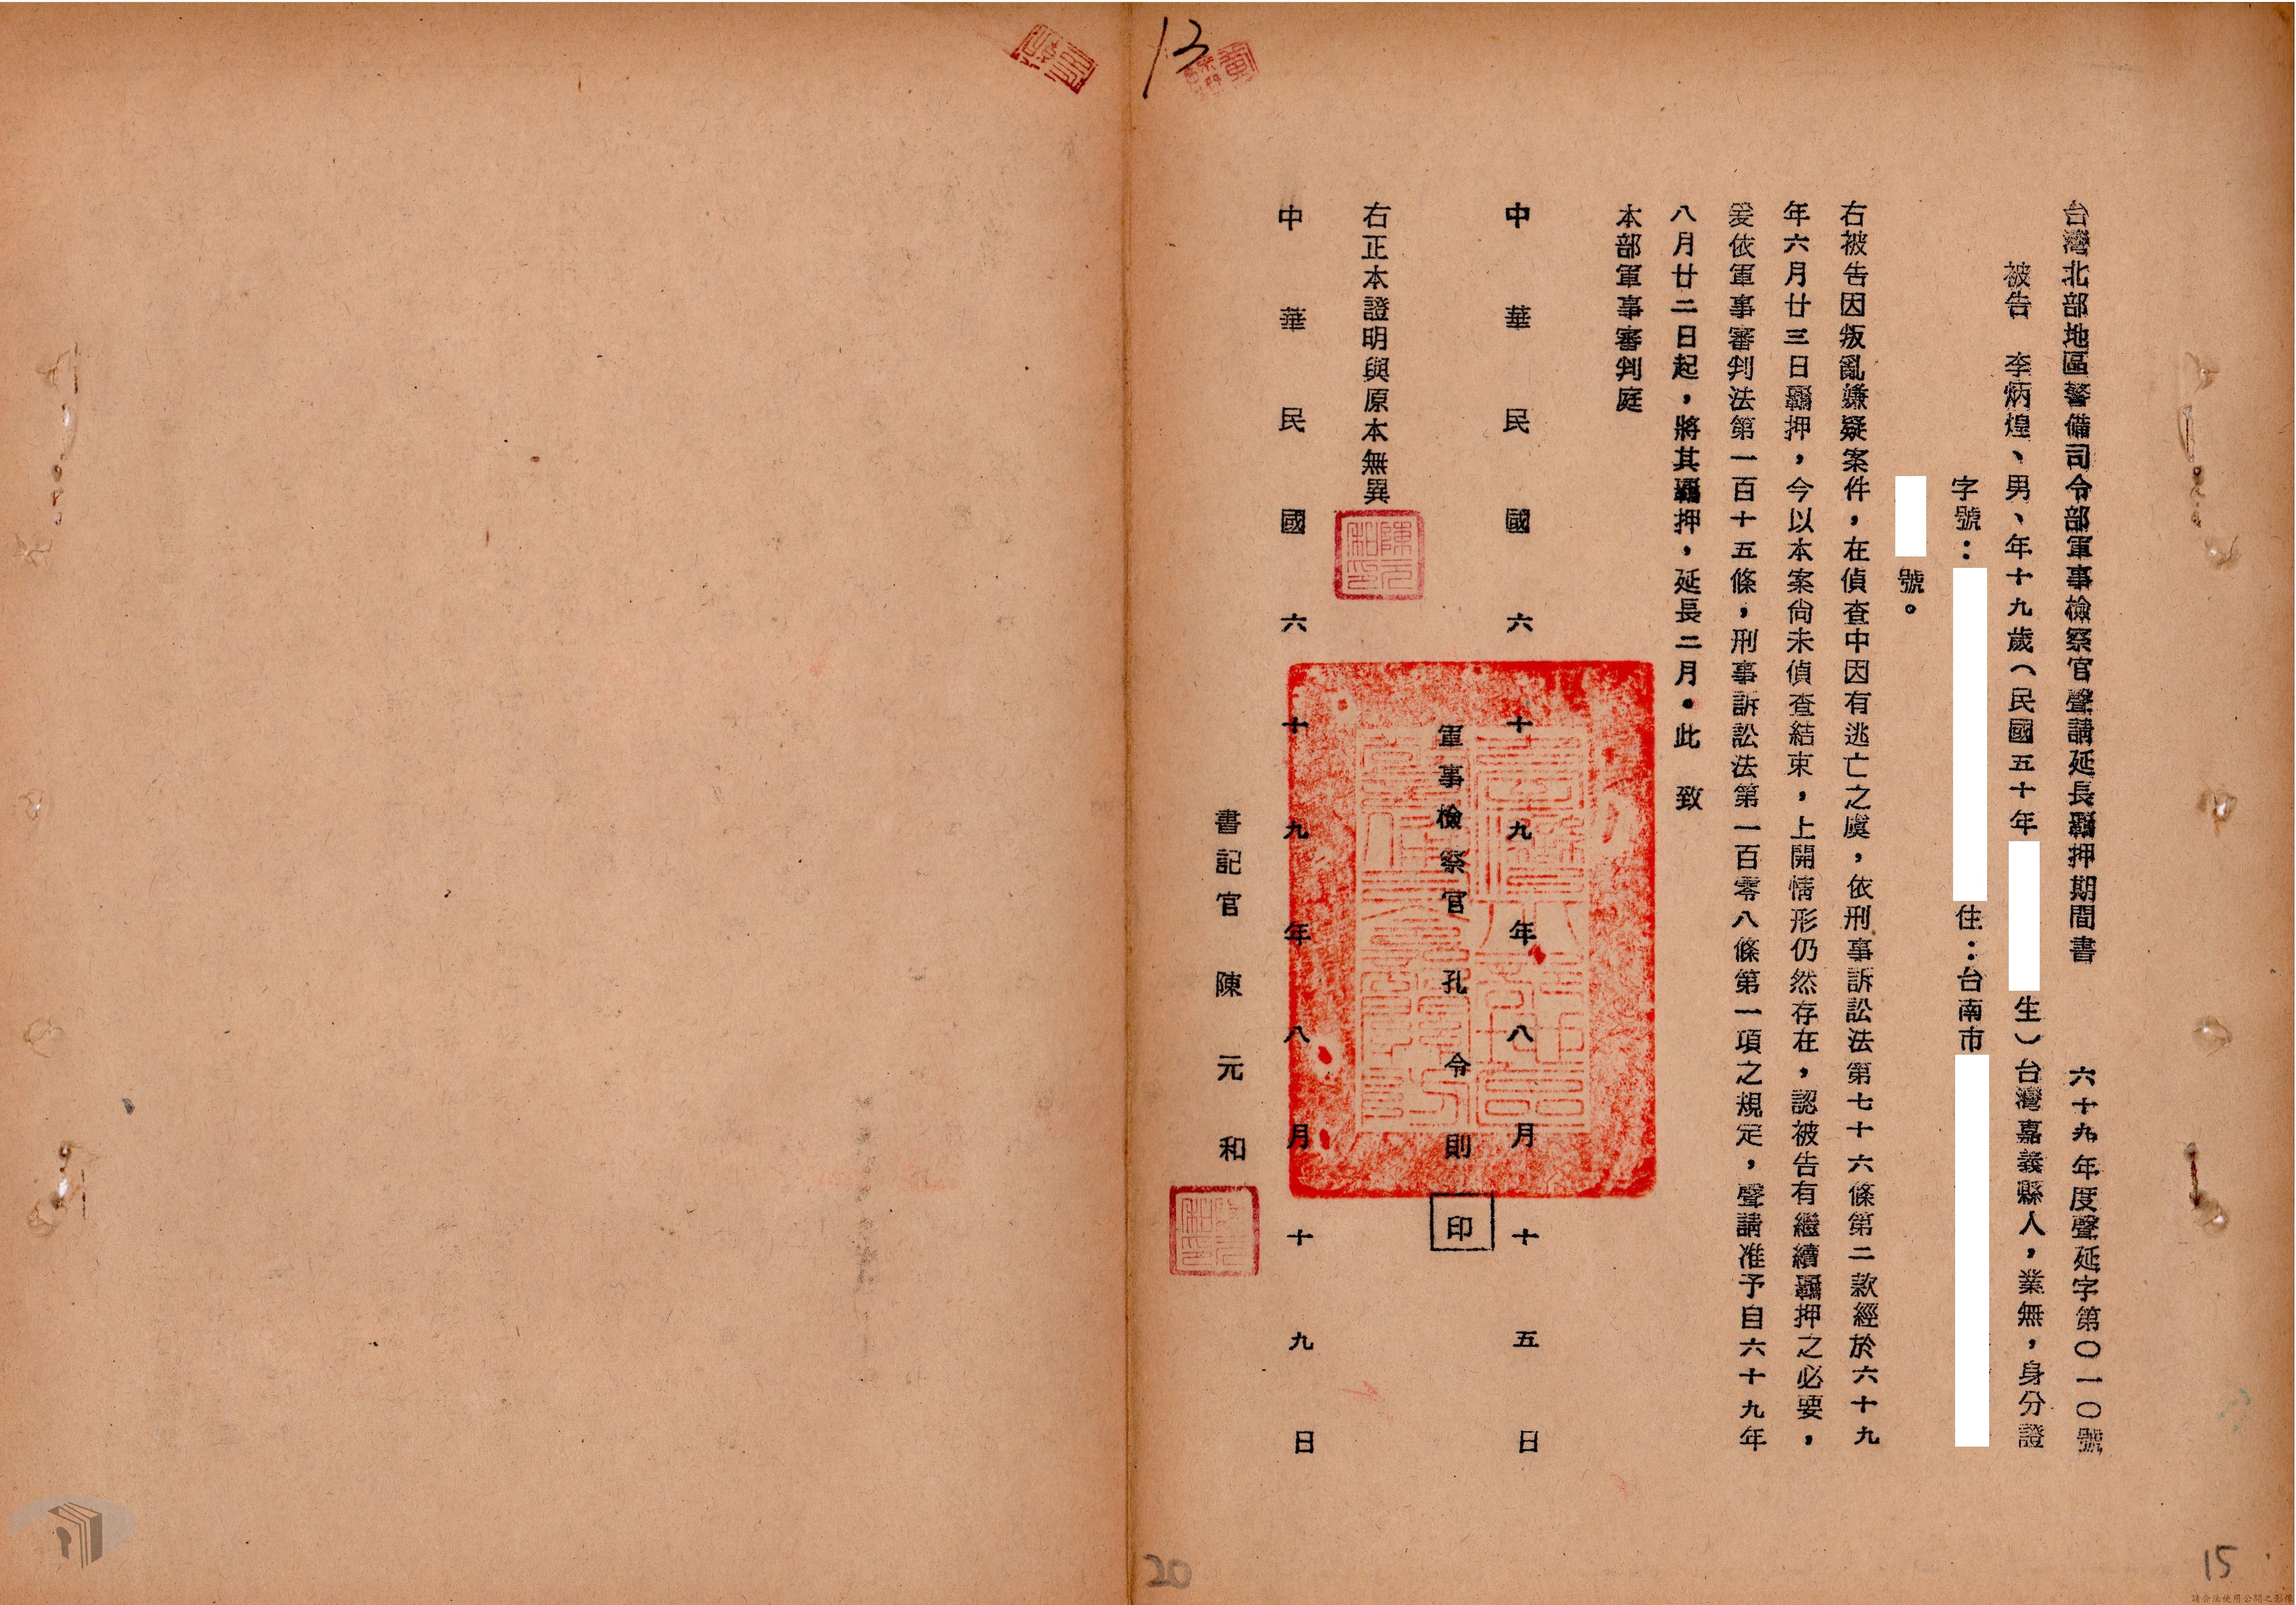 台灣北部地區警備司令部軍事檢察官聲請延長羈押期間書 六十九年度聲延字第〇一〇號
被告 李炳煌、男、年十九歲(民國五十年 生)台灣嘉義縣人,業無,身分證
字號: 住:台南市
號。
右被告因叛亂嫌疑案件,在偵查中因有逃亡之虞,依刑事訴訟法第七十六條第二款經於六十九
年六月廿三日羈押,今以本案尙未偵查結束,上開情形仍然存在,認被告有繼續羈押之必要,
爰依軍事審判法第一百十五條,刑事訴訟法第一百零八條第一項之規定,聲請准予自六十九年
八月廿二日起,將其羈押,延長二月。此 致
本部軍事審判庭
中華民國六十九年八月十五日
軍事檢察官 孔令則 印
右正本證明與原本無異
陳元和印
中華民國六十九年八月十九日
書記官 陳元和
陳元和印
13
20
15
請合法使用公開之影像